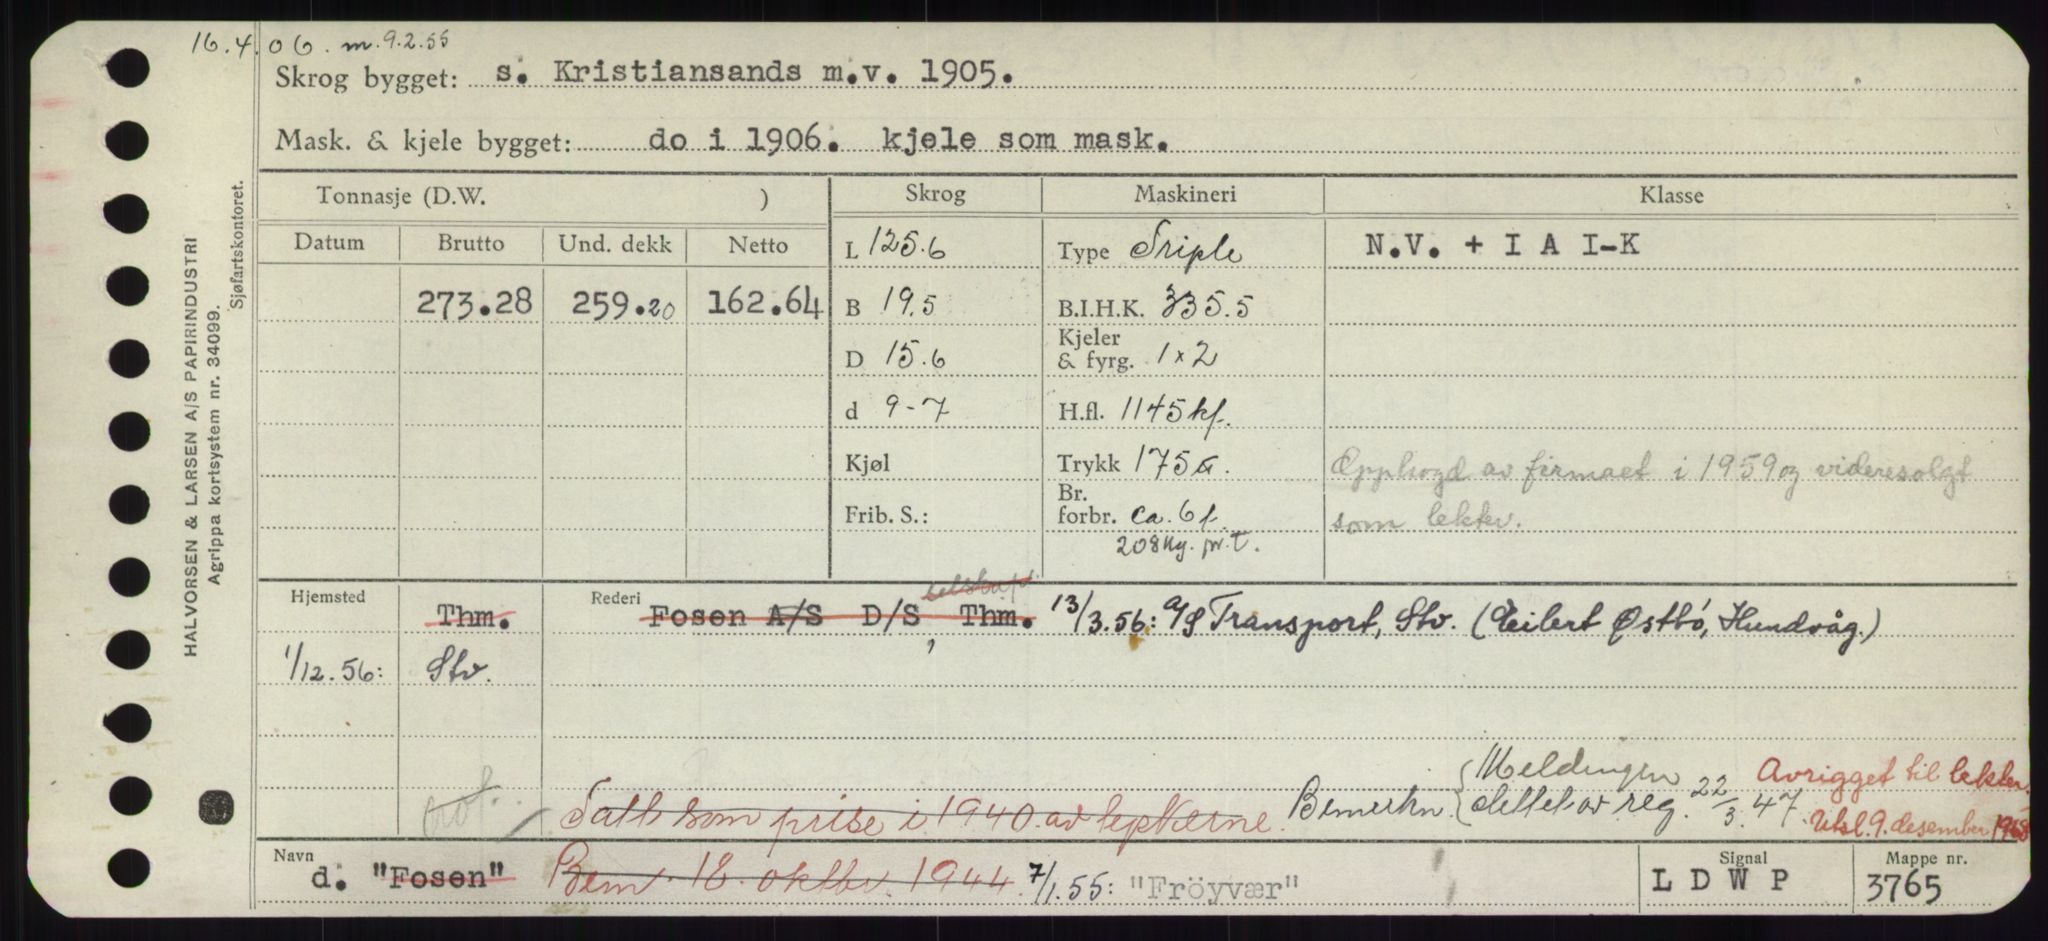 16.4.06. m.9.2.55
Skrog bygget: s. Kristiansands m.v. 1905.
Mask. & kjele bygget: do i 1906. kjele som mask.
HALVORSEN & LARSEN A/S PAPIRINDUSTRI
Agrippa kortsystem nr. 34099.
Sjøfartskontoret.
Tonnasje (D.W. ) Skrog Maskineri Klasse
Datum Brutto Und. dekk Netto L 125.6 Type Triple N.V. + I A I-K
273.28 259.20 162.64 B 19.5 B.I.H.K. 335.5
D 15.6 Kjeler & fyrg. 1x2
d 9-7 H.fl. 1145 kf.
Kjøl Trykk 175 Opphogd av firmaet i 1959 og videresolgt
Frib. S.: Br. forbr. ca. 6 t. som lekter.
208 kg. pr. t.
selskap
Hjemsted Thm. Rederi Fosen A/S D/S, Thm. 13/3.56: A/S Transport, Stv. (Eilert Østbö, Hundvåg.)
1/12.56: Stv.
Tatt som prise i 1940 av tyskerne. Bemerkn. {Meldingen slettet av reg. 22/3.47. Avrigget til lekter.
Utsl. 9. desember 1968
Navn d. "Fosen" Bem. 18. oktbr. 1944 7/1.55: "Fröyvær" Signal L D W P Mappe nr. 3765